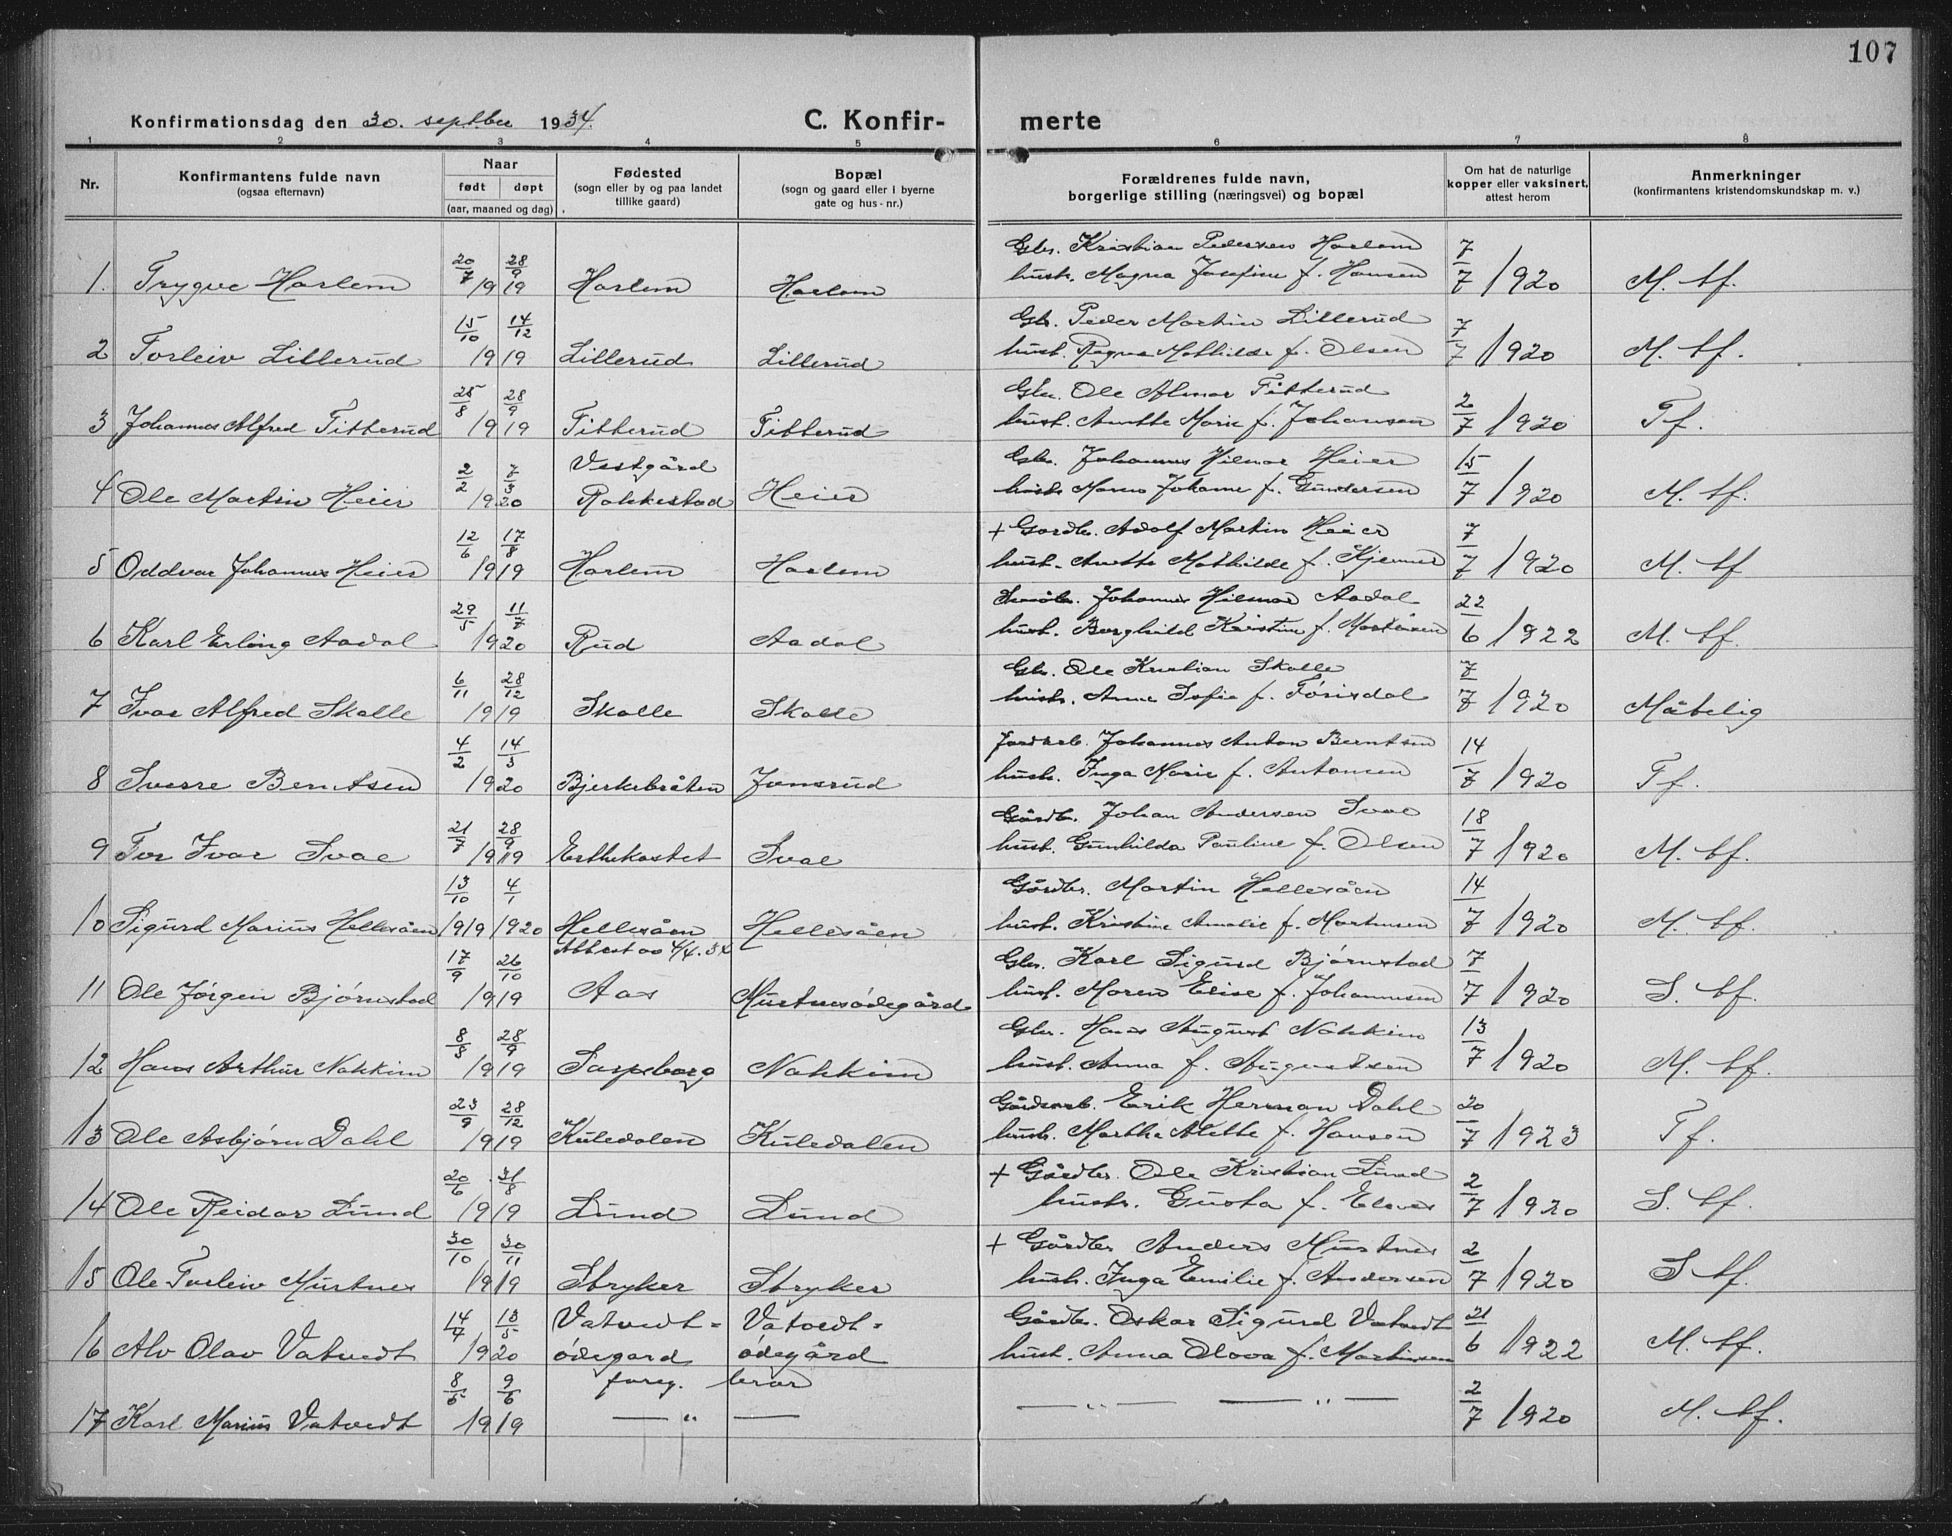 107
Konfirmationsdag den 30. septbr 1934.
C. Konfir- merte
1 2 3 4 5 6 7 8
Nr.
Konfirmantens fulde navn
(ogsaa efternavn)
Naar
født døpt
(aar, maaned og dag)
Fødested
(sogn eller by og paa landet
tillike gaard)
Bopæl
(sogn og gaard eller i byerne
gate og hus-nr.)
Forældrenes fulde navn,
borgerlige stilling (næringsvei) og bopæl
Om hat de naturlige
kopper eller vaksinert,
attest herom
Anmerkninger
(konfirmantens kristendomskundskap m. v.)
20/7 28/9 Gbr. Kristian Pedersen Harlem 7
1. Trygve Harlem 1919 Harlem Harlem hustr. Magna Josefine f. Hansen 7/1920 M. tf.
15/10 14/12 Gbr. Peder Martin Lillerud 7
2 Torleiv Lillerud 1919 Lillerud Lillerud hust. Ragna Mathilde f. Olsen 7/1920 M. tf.
25/8 28/9 Gbr. Ole Almar Titterud 2
3 Johannes Alfred Titterud 1919 Titterud Titterud hust. Anette Marie f. Johansen 7/1920 Tf.
2/2 7/3 Vestgård Gbr. Johannes Hilmar Heier 15
4 Ole Martin Heier 1920 Rakkestad Heier hustr. Maren Johanne f. Gundersen 7/1920 M. tf.
12/6 17/8 + Gardbr. Adolf Martin Heier 7
5 Oddvar Johannes Heier 1919 Harlem Harlem hust. Anette Mathilde f. Kjennes 7/1920 M. tf
29/5 11/7 Småbr. Johannes Hilmar Aadal 22
6 Karl Erling Aadal 1920 Rud Aadal hust. Borghild Kristine f. Martinsen 6/1922 M. tf.
6/11 28/12 Gbr. Ole Kristian Skolle 7
7 Ivar Alfred Skolle 1919 Skolle Skolle hustr. Anne Sofie f. Tørisdal 7/1920 Måtelig
4/2 14/3 Jordarb. Johannes Anton Berntsen 14
8 Sverre Berntsen 1920 Bjerkebråten Jonsrud hustr. Inga Marie f. Antonsen 7/1920 Tf.
21/7 28/9 Gårdbr. Johan Andersen Svae 18
9 Tor Ivar Svae 1919 Ertekastet Svae hust. Gunhilda Pauline f. Olsen 7/1920 M. tf.
13/10 4/1 Gårdbr. Martin Hellesåen 14
10 Sigurd Marius Hellesåen 1919 1920 Hellesåen Hellesåen hust. Kristine Amalie f. Martinsen 7/1920 M. tf.
Attest 4/4.34
17/9 26/10 Gbr. Karl Sigurd Bjørnstad 7
11 Ole Jørgen Bjørnstad 1919 Aas Mustnesødegård hust. Maren Elise f. Johannesen 7/1920 S. tf.
8/8 28/9 Gbr. Hans August Nakkim 13
12 Hans Arthur Nakkim 1919 Sarpsborg Nakkim hust. Anna f. Augustsen 7/1920 M. tf.
23/9 28/12 Gårdarb. Erik Herman Dahl 20
13 Ole Asbjørn Dahl 1919 Kuledalen Kuledalen hustr. Martha Alette f. Hansen 7/1923 Tf.
20/6 31/8 + Gårdbr. Ole Kristian Lund 2
14 Ole Reidar Lund 1919 Lund Lund hustr. Gusta f. 7/1920 S. tf.
30/10 30/11 + Gårdbr Anders Mustnes 2
15 Ole Torleiv Mustnes 1919 Stryker Stryker hustr. Inga Emilie f. Andersen 7/1920 S tf.
14/4 13/5 Vatvedt= Vatvedt= Gårdbr. Oskar Sigurd Vatvedt 21
16 Alv Olav Vatvedt 1920 ødegard ødegård hust. Anna Olova f. Martinsen 6/1922 M. tf.
8/5 9/6 foreg. bror 2
17 Karl Marius Vatvedt 1919 — " — — " — — " — 7/1920 M. tf.